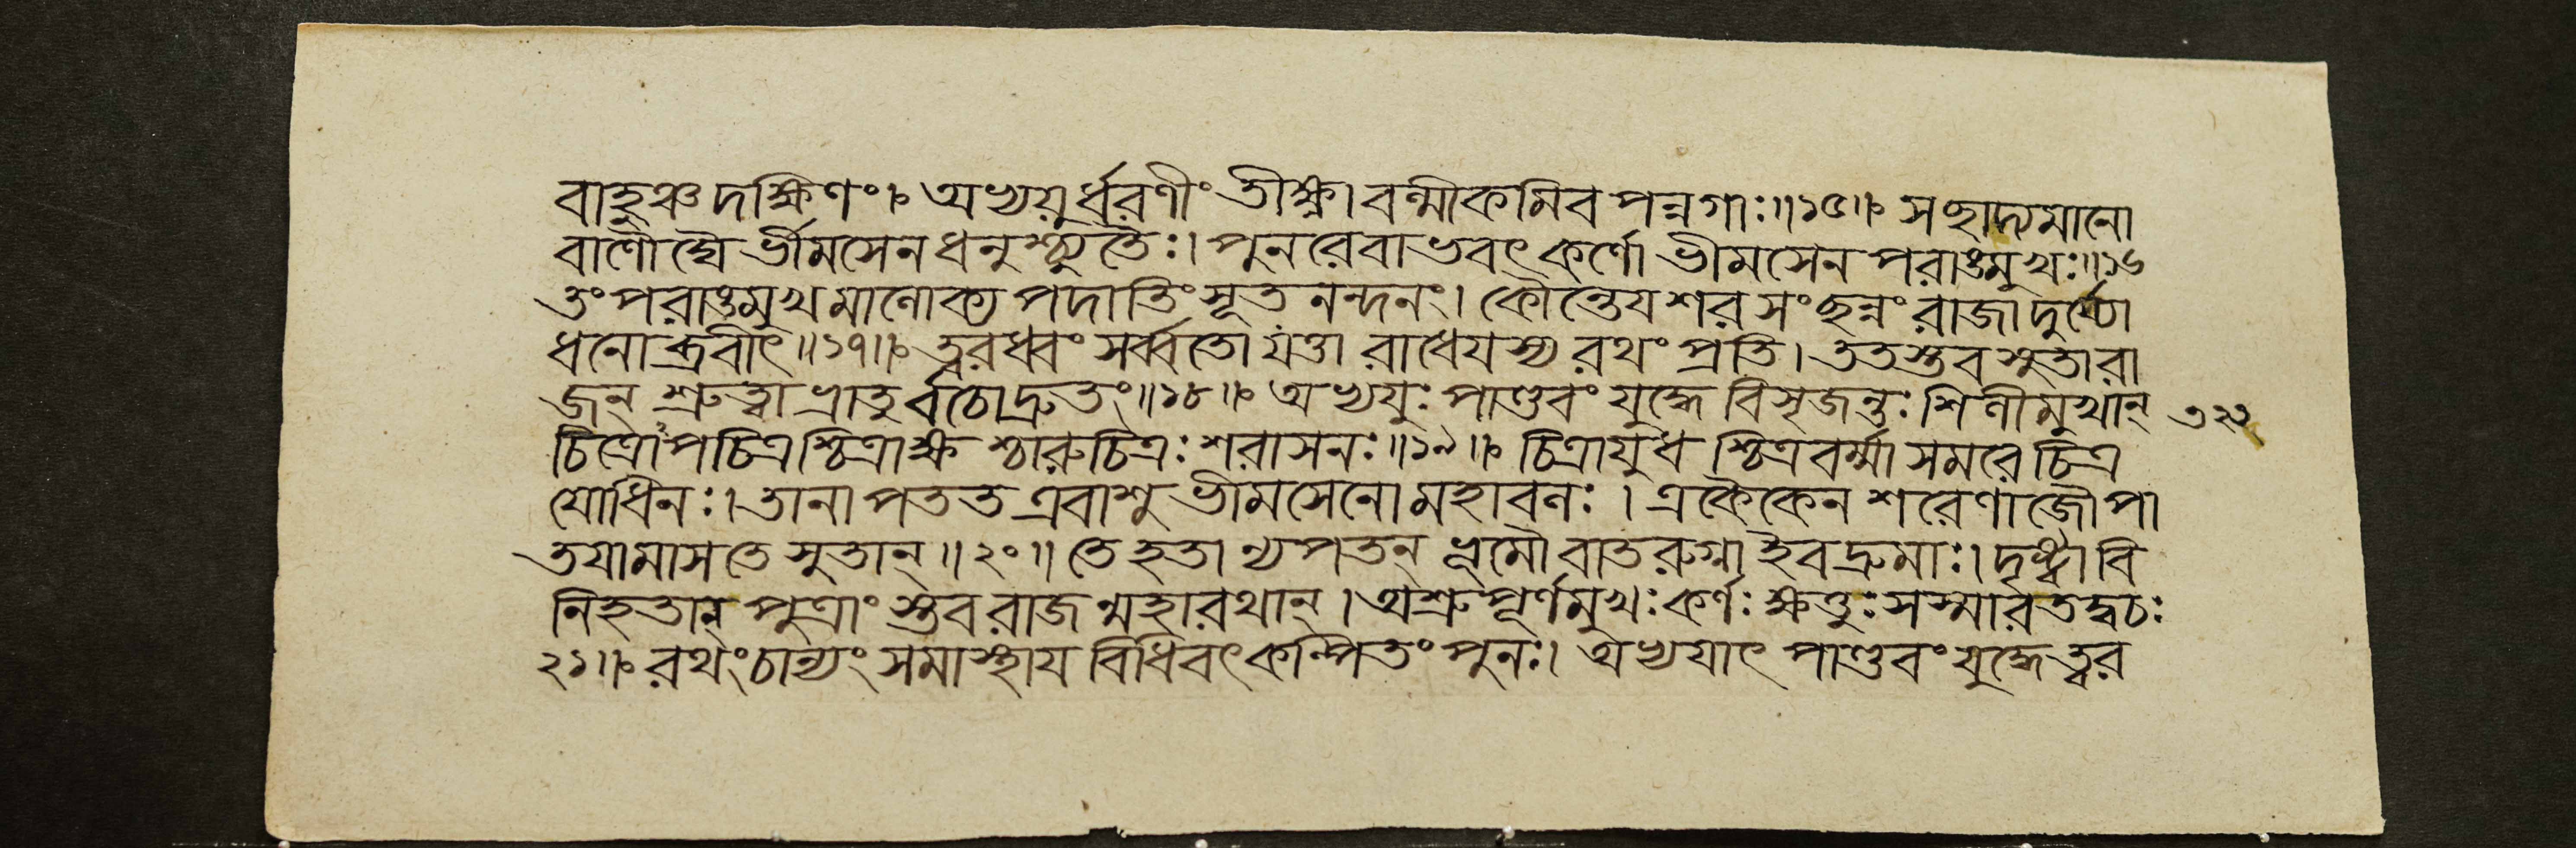 বাহুঞ্চ দক্ষিণং॥ অভ্যয়ুর্ধরণীং তীক্ষ্ণা বল্মীকমিব পন্নগাঃ॥১৫॥ সঞ্ছাদ্যমানো
বাণৌঘৈ র্ভীমসেনধনুশ্চ্যুতৈঃ। পুনরেবাভবৎ কর্ণো ভীমসেন পরাঙমুখঃ॥১৬
তং পরাঙমুখমালোক্য পদাতিং সূতনন্দনং। কৌন্তেয শরসংছন্নং রাজা দুর্যো
ধনোব্রবীৎ॥১৭॥ ত্বরধ্বং সর্ব্বতো যত্তা রাধেযস্য রথং প্রতি। ততস্তব সুতা রা
জন্ শ্রুত্বা ভ্রাতুর্বচোদ্রুতং॥১৮॥ অভ্যযুঃ পাণ্ডবং যুদ্ধে বিসৃজন্তঃ শিলীমুখান্
চিত্রোপচিত্রশ্চিত্রাক্ষ শ্চারুচিত্রঃ শরাসনঃ॥১৯॥ চিত্রাযুধ শ্চিত্রবর্ম্মা সমরে চিত্র
যোধিনঃ। তানাপতত এবাশু ভীমসেনো মহাবলঃ। একৈকেন শরেণাজৌ পা
তযামাস তে সুতান্॥২০॥ তে হতা ন্যপতন্ ভূমৌ বাতরুগ্না ইব দ্রুমাঃ। দৃষ্ট্বা বি
নিহতান্ পুত্রাং স্তব রাজ ন্মহারথান্। অশ্রুপূর্ণমুখঃ কর্ণঃ ক্ষত্তুঃ সস্মার তদ্বচঃ
২১॥ রথং চান্যং সমাস্থায বিধিবৎ কল্পিতং পুনঃ। অভ্যযাৎ পাণ্ডবং যুদ্ধে ত্বর